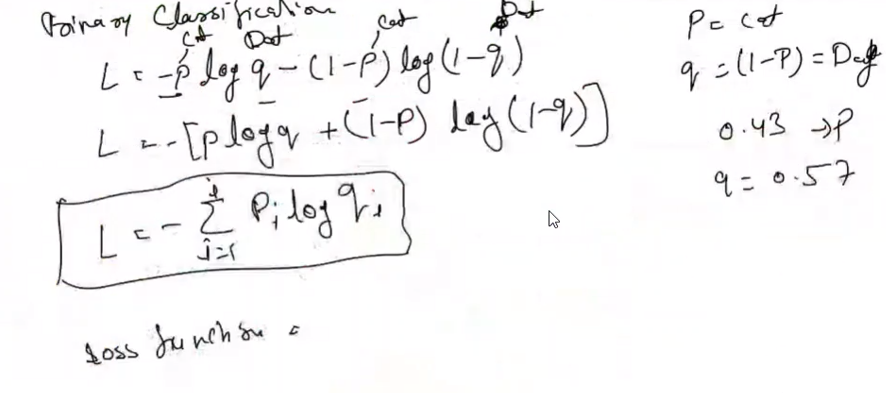 Binary Classification
Cat Dot Cat Dot
L = -p log q - (1-p) log (1-q)
L = -[p log q + (1-p) log (1-q)]
L = - Σ i=1 Pi log qi
Loss function =
P = Cat
q = (1-P) = Dog
0.43 → P
q = 0.57